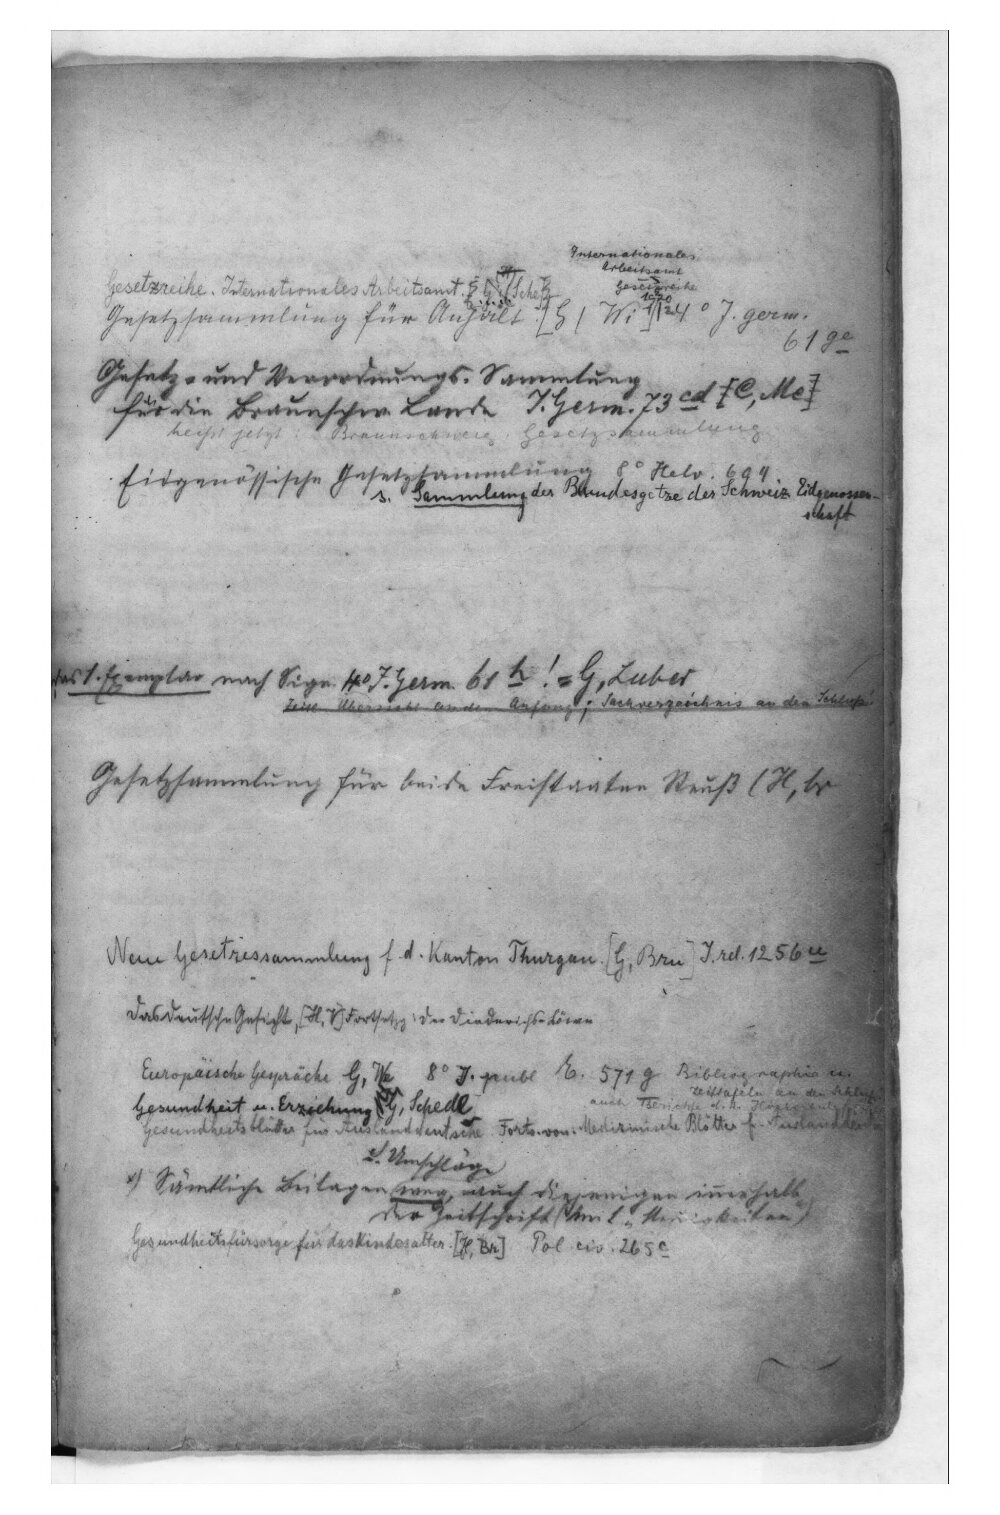 Internationales
Arbeitsamt
Gesetzreihe
1920
Gesetzreihe. Internationales Arbeitsamt.
Gesetzsammlung für Anhalt. [G, Wi] 4° J. germ.
61 ge
Gesetz- und Verordnungs-Sammlung
für die Braunschw. Lande J. Germ. 73 cd [C, Me]
heißt jetzt: Braunschweig. Gesetzsammlung
Eidgenössische Gesetzsammlung 8° Helv. 694
s. Sammlung der Bundesgetze der Schweiz Eidgenossen-
schaft
das 1. Exemplar nach Sign. 4° J. Germ. 61 h! = G, Luber
Zeitl. Übersicht an den Anfang; Sachverzeichnis an den Schluß!
Gesetzsammlung für beide Freistaaten Reuß (H, br
Neue Gesetzessammlung f. d. Kanton Thurgau. [G, Bru] J. rel. 1256 u
Das deutsche Gesicht, [H, V] Fortsetzg: Der Diederichs-Löwe
Europäische Gespräche G, We 8° J. publ E. 571 g Bibliographie u.
Zeittafeln an den Schluß
Gesundheit u. Erziehung G, Schedl auch Berichte d. k.
Gesundheitsblätter für Auslanddeutsche Forts. von: Medizinische Blätter f. Auslanddeutsche
s. Umschläge
x) Sämtliche Beilagen weg, auch diejenigen innerhalb
der Zeitschrift
Gesundheitsfürsorge für das Kindesalter. [H, Br] Pol. civ. 265 c